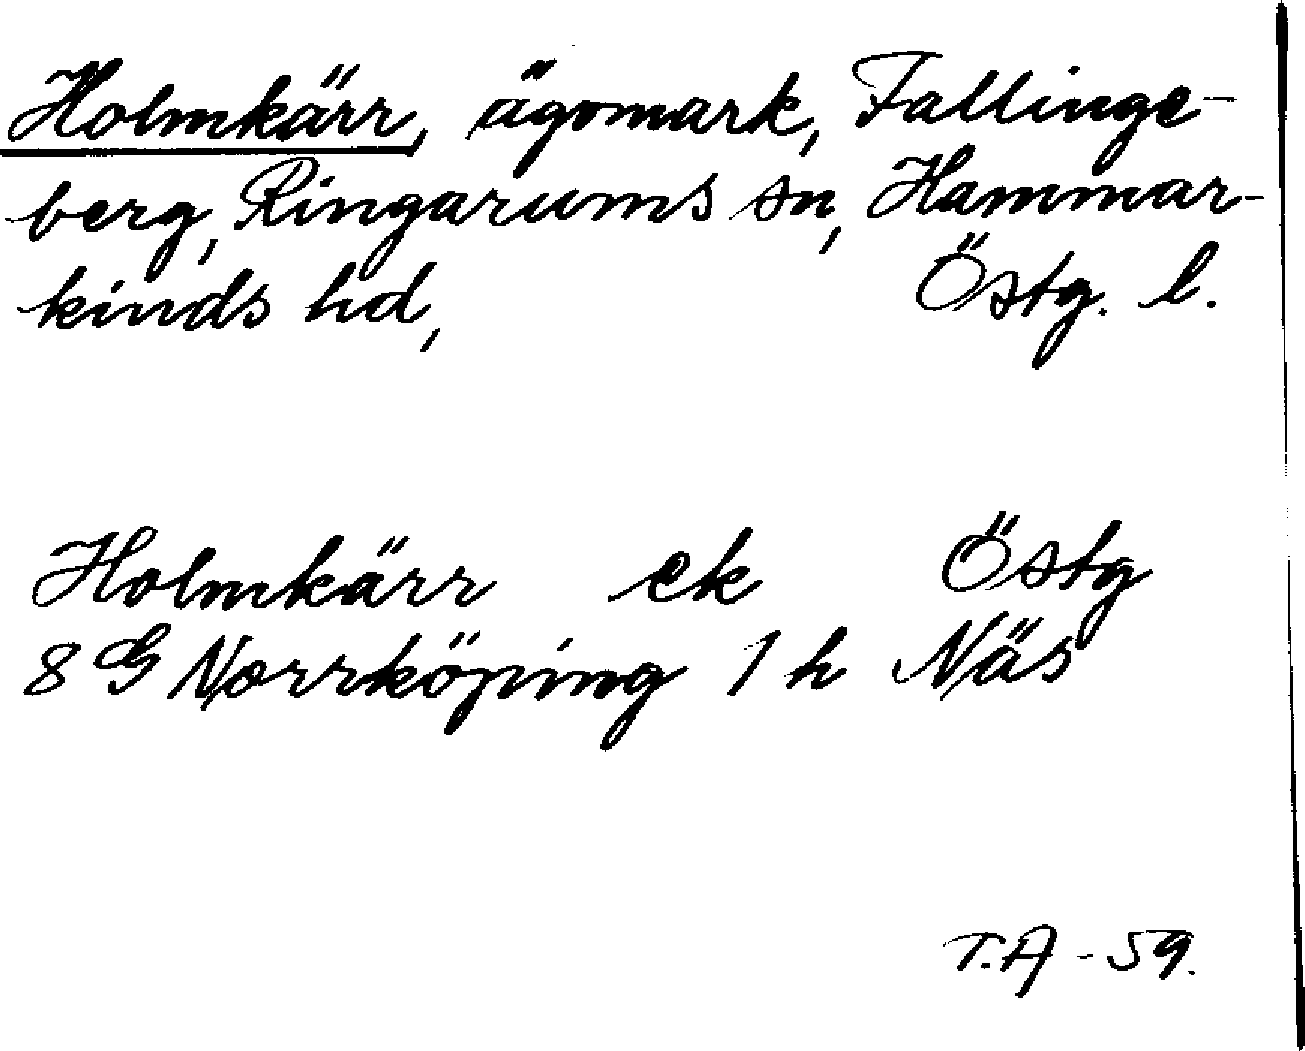 Holmkärr, ägomark, Fallinge-
berg, Ringarums sn, Hammar-
kinds hd, Östg. l.
Holmkärr ek Östg
8 G Norrköping 1 h Näs
T.A - 59.